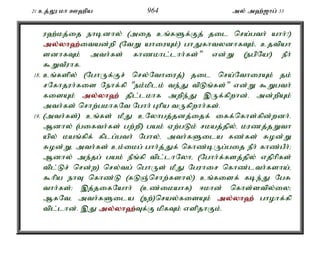 21 உத்லு மா ஊஹிய 964 அல் அஹ்ஜாப் 33
ரஹ்மத்தை நாடினால் (அதை உங்களுக்குத் தடை செய்பவர் யார்?)
அல்லாஹ்வையன்றி (வேறு யாரையும்) பாதுகாவலனாகவும், உதவியா
ளனாகவும் அவர்கள் காணமாட்டார்கள்" என்று (நபியே!) நீர்
கூறுவீராக.
18. உங்களில் (போருக்குச் செல்வோரைத்) தடை செய்வோரையும் தம்
சகோதரர்களை நோக்கி "நம்மிடம் வந்து விடுங்கள்" என்று கூறுபவர்
களையும் அல்லாஹ் திட்டமாக அறிந்து இருக்கிறான். அன்றியும்
அவர்கள் சொற்பமாகவே போர் புரிய வருகிறார்கள்.
19. (அவர்கள்) உங்கள் மீது உலோபத்தனத்தைக் கைக்கொள்கின்றனர்.
ஆனால் (பகைவர்கள் பற்றி) பயம் ஏற்படும் சமயத்தில், மரணத்துறுவா
யில் மயங்கிக் கிடப்பவர் போல், அவர்களுடைய கண்கள் சுழன்று
சுழன்று, அவர்கள் உம்மைப் பார்த்துக் கொண்டிருப்பதை நீர் காண்பீர்;
ஆனால் அந்தப் பயம் நீங்கி விட்டாலோ, (போர்க்களத்தில் எதிரிகள்
விட்டுச் சென்ற) செல்வப் பொருள் மீது பேராசை கொண்டவர்களாய்,
கூரிய நாவு கொண்டு (கடுஞ்சொற்களால்) உங்களைக் கடிந்து பேசு
வார்கள்; இத்தகையோர் (உண்மையாக) ஈமான் கொள்ளவில்லை;
ஆகவே, அவர்களுடைய (நற்)செயல்களையும் அல்லாஹ் பாழாக்கி
விட்டான். இது அல்லாஹ்வுக்கு மிகவும் எளிதாகும்.